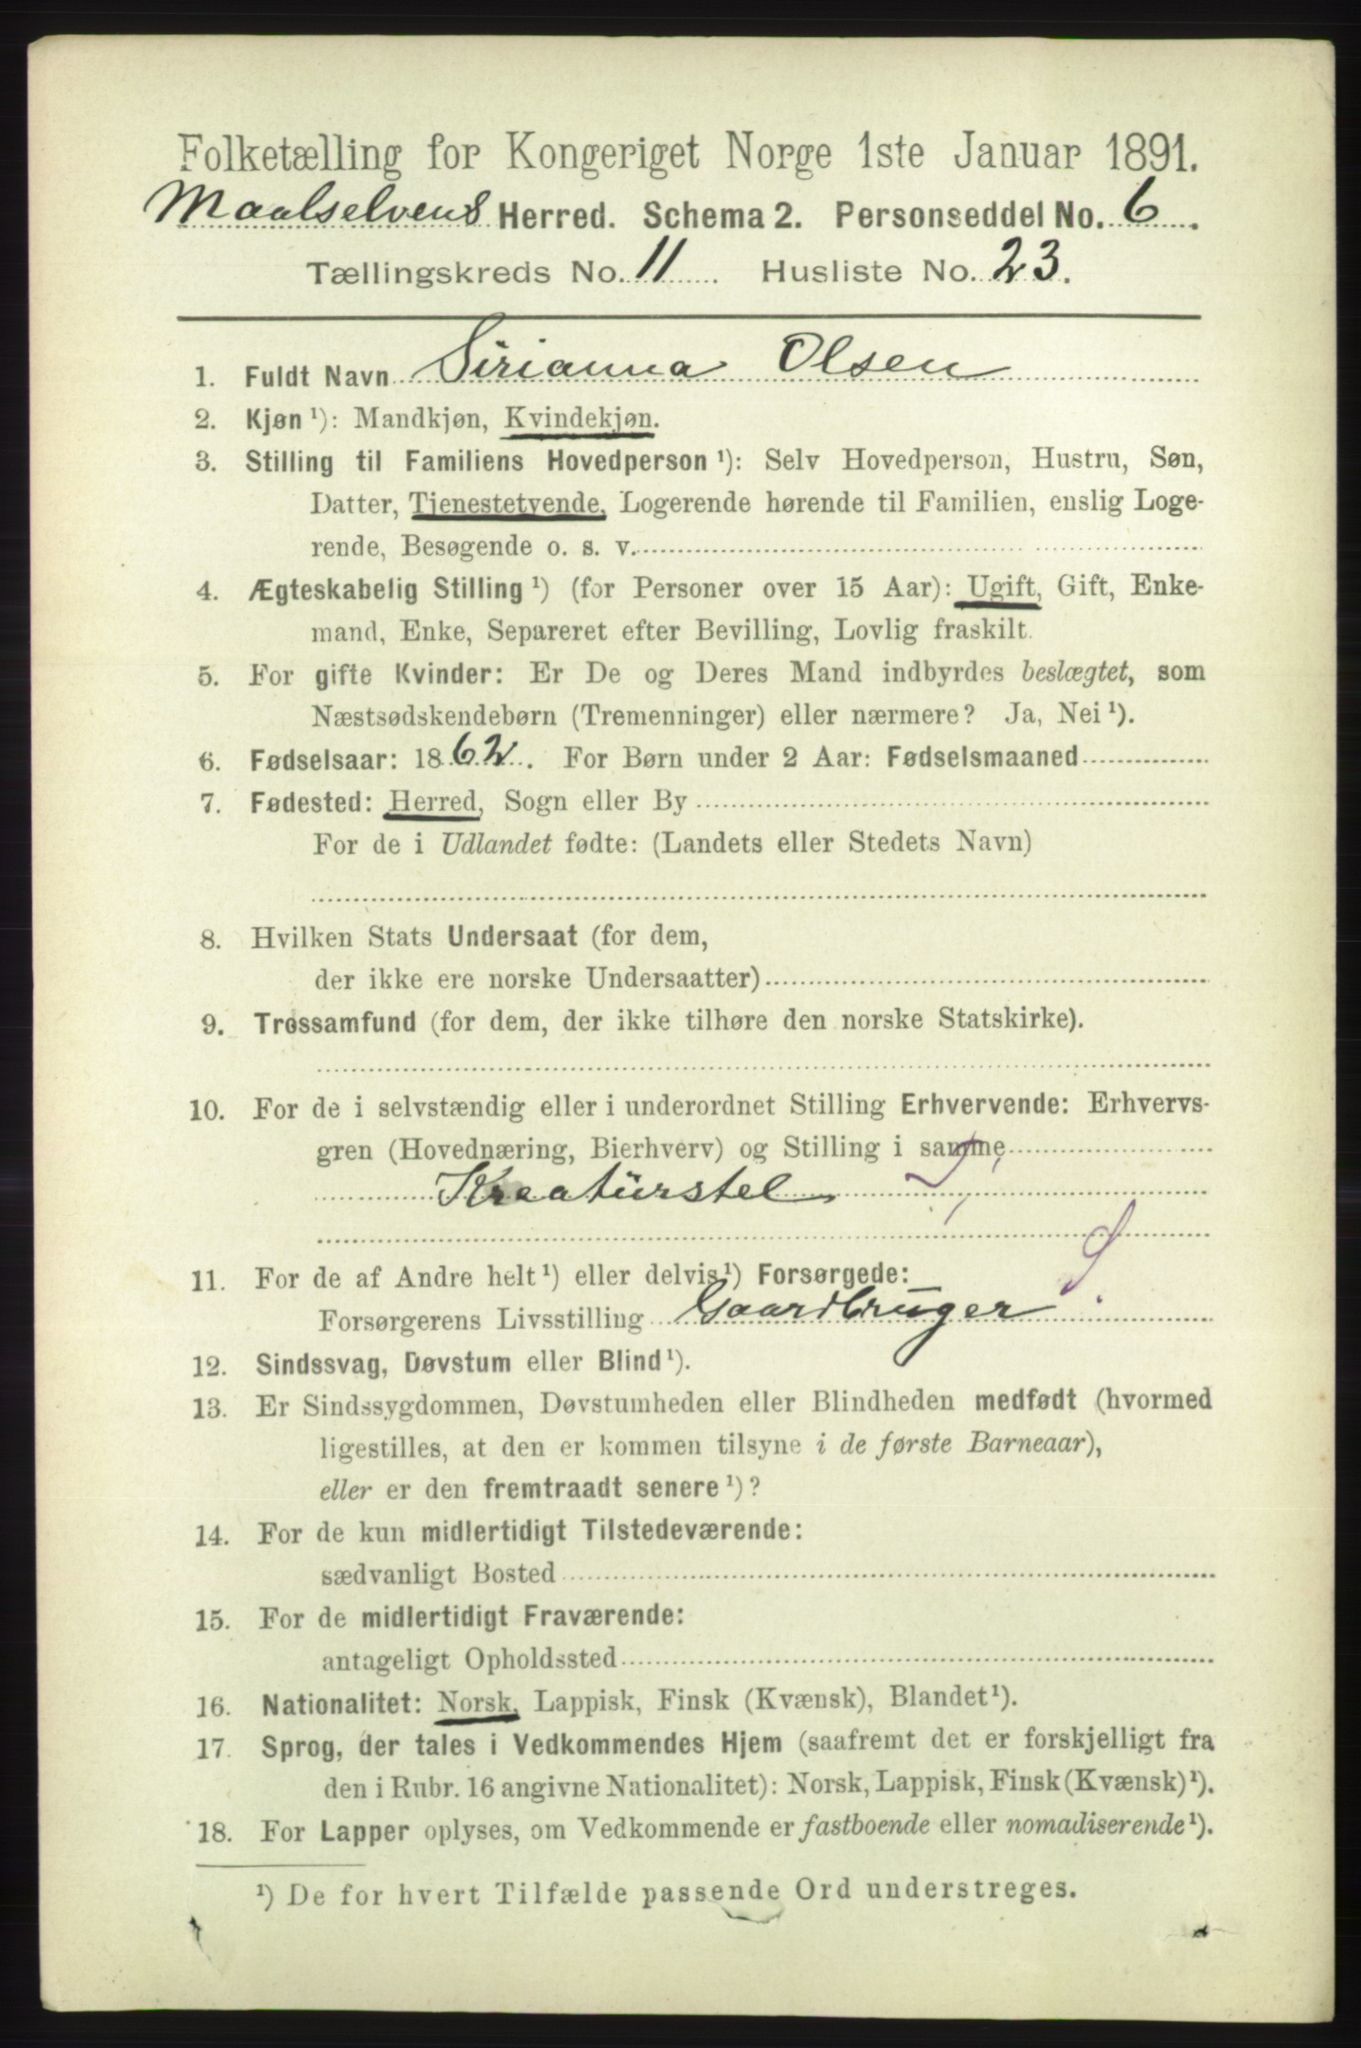 Folketælling for Kongeriget Norge 1ste Januar 1891.
Maalselvens Herred. Schema 2. Personseddel No. 6.
Tællingskreds No. 11. Husliste No. 23.
1. Fuldt Navn Sirianna Olsen
2. Kjøn ¹): Mandkjøn, Kvindekjøn.
3. Stilling til Familiens Hovedperson ¹): Selv Hovedperson, Hustru, Søn,
Datter, Tjenestetyende, Logerende hørende til Familien, enslig Loge-
rende, Besøgende o. s. v.
4. Ægteskabelig Stilling ¹) (for Personer over 15 Aar): Ugift, Gift, Enke-
mand, Enke, Separeret efter Bevilling, Lovlig fraskilt.
5. For gifte Kvinder: Er De og Deres Mand indbyrdes beslægtet, som
Næstsødskendebørn (Tremenninger) eller nærmere? Ja, Nei ¹).
6. Fødselsaar: 1862. For Børn under 2 Aar: Fødselsmaaned
7. Fødested: Herred, Sogn eller By
For de i Udlandet fødte: (Landets eller Stedets Navn)
8. Hvilken Stats Undersaat (for dem,
der ikke ere norske Undersaatter)
9. Trossamfund (for dem, der ikke tilhøre den norske Statskirke).
10. For de i selvstændig eller i underordnet Stilling Erhvervende: Erhvervs-
gren (Hovednæring, Bierhverv) og Stilling i samme
Kreaturstel
11. For de af Andre helt ¹) eller delvis ¹) Forsørgede:
Forsørgerens Livsstilling Gaardbruger
12. Sindssvag, Døvstum eller Blind ¹).
13. Er Sindssygdommen, Døvstumheden eller Blindheden medfødt (hvormed
ligestilles, at den er kommen tilsyne i de første Barneaar),
eller er den fremtraadt senere ¹)?
14. For de kun midlertidigt Tilstedeværende:
sædvanligt Bosted
15. For de midlertidigt Fraværende:
antageligt Opholdssted
16. Nationalitet: Norsk, Lappisk, Finsk (Kvænsk), Blandet ¹).
17. Sprog, der tales i Vedkommendes Hjem (saafremt det er forskjelligt fra
den i Rubr. 16 angivne Nationalitet): Norsk, Lappisk, Finsk (Kvænsk) ¹).
18. For Lapper oplyses, om Vedkommende er fastboende eller nomadiserende ¹).
¹) De for hvert Tilfælde passende Ord understreges.